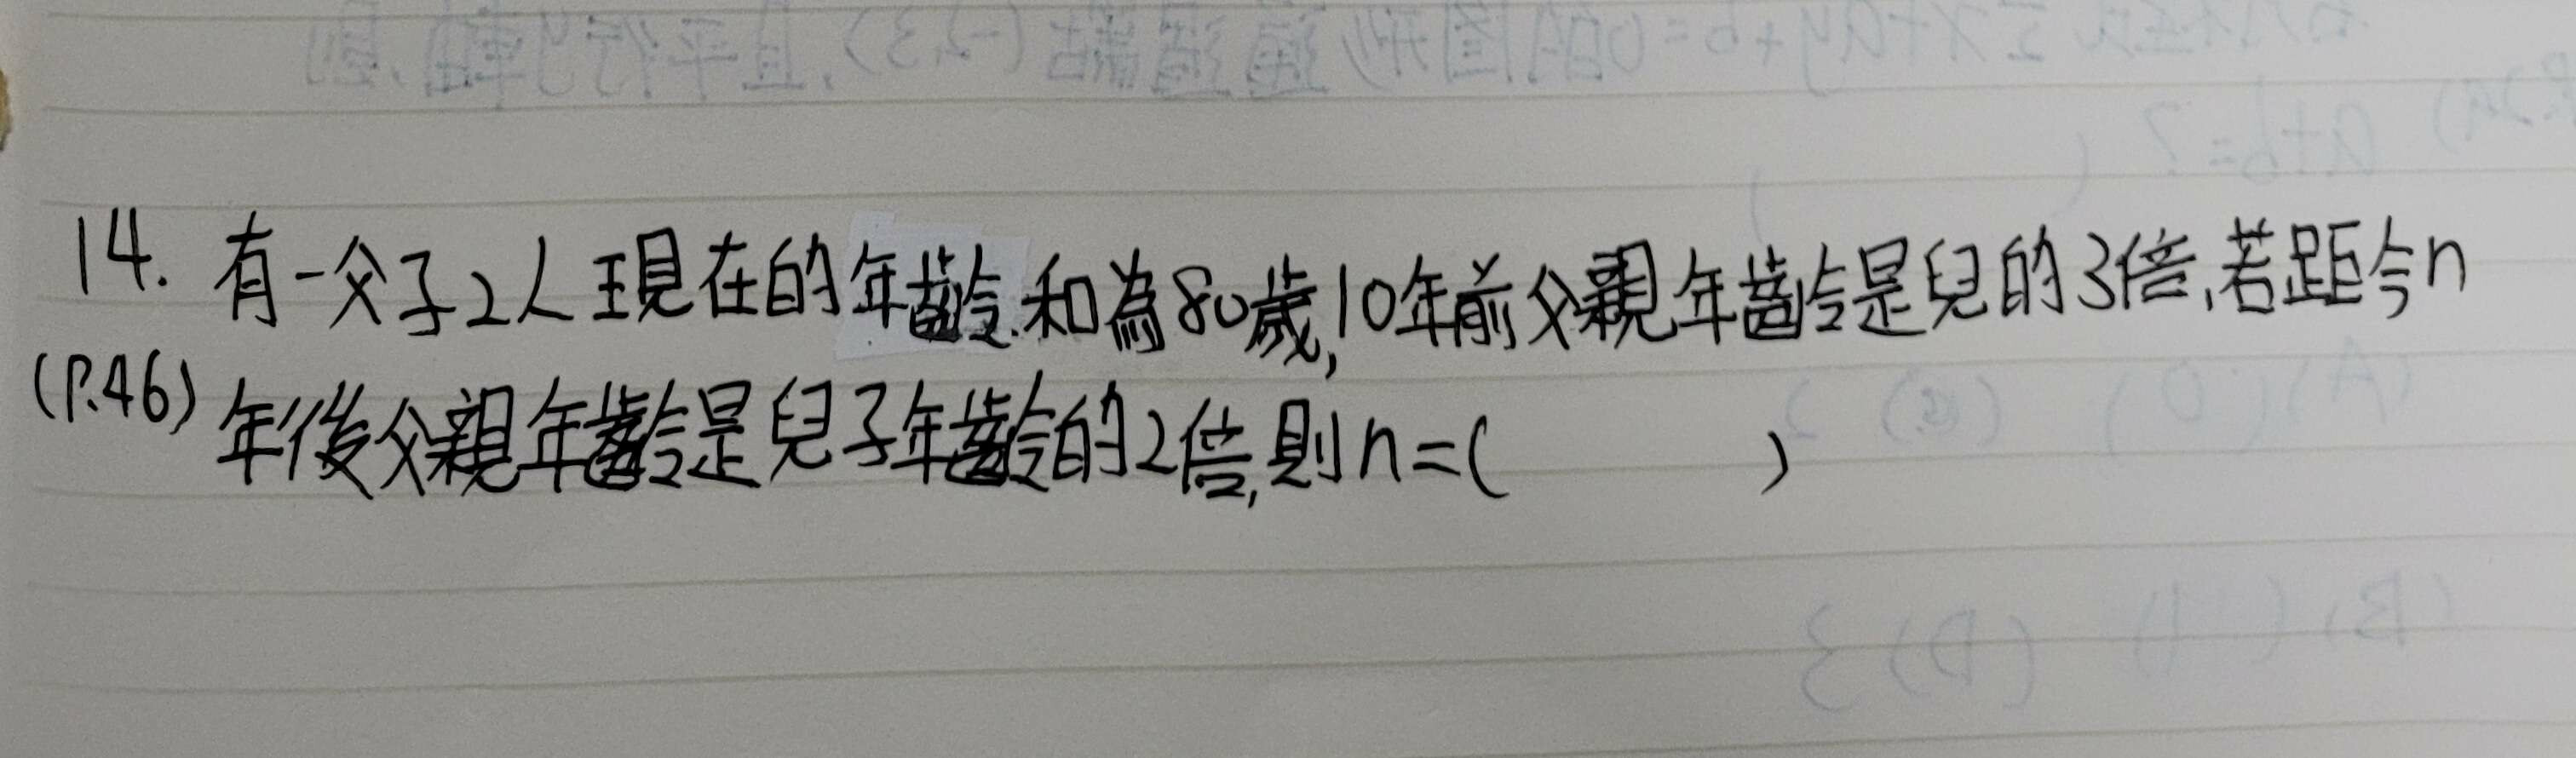 14. 有一父子2人現在的年齡和為80歲,10年前父親年齡是兒的3倍,若距今n
(P.46) 年後父親年齡是兒子年齡的2倍,則n=(          )